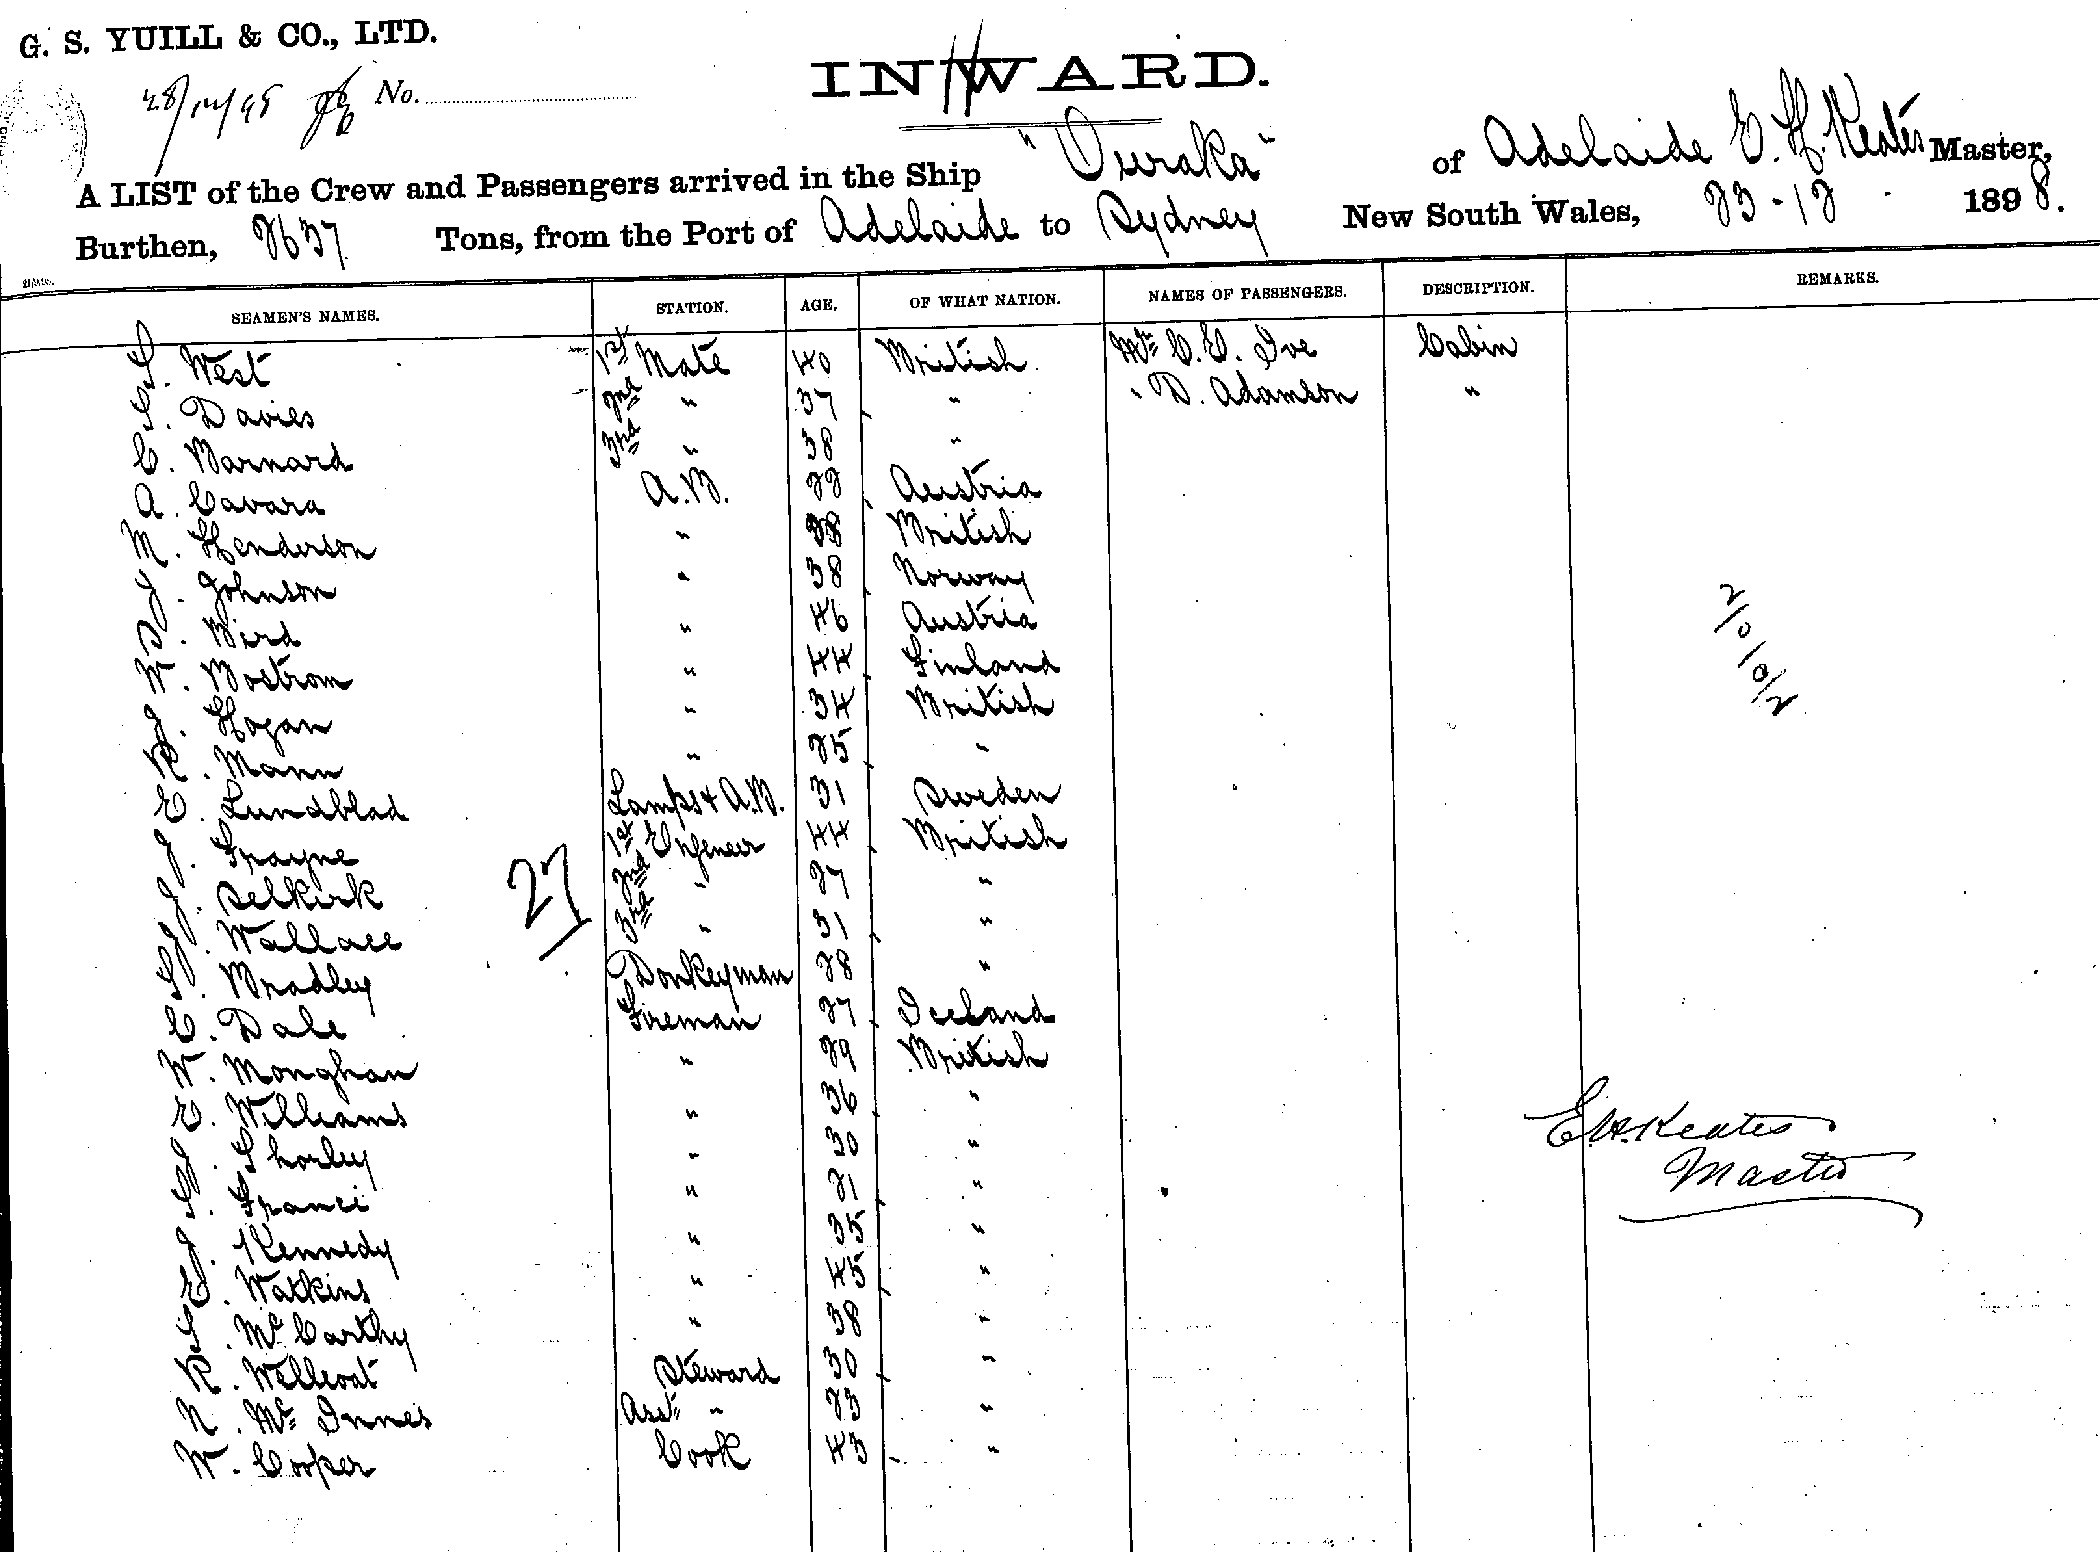 G. S. YUILL & CO., LTD.
28/12/98 No.
INWARD.
A LIST of the Crew and Passengers arrived in the Ship "Ouraka" of Adelaide E. H. Keates Master,
Burthen, 2637 Tons, from the Port of Adelaide to Sydney New South Wales, 23-12 1898.
SEAMEN'S NAMES. STATION. AGE. OF WHAT NATION. NAMES OF PASSENGERS. DESCRIPTION. REMARKS.
West 1st Mate 40 British Mr C. E. Ive Cabin
Davies 2nd " 37 " " D. Adamson "
C. Barnard 3rd " 38 "
A. Cavara A.B. 22 Austria
M. Henderson " 28 British
J. Johnson " 38 Norway
Bird " 46 Austria
W. Bostrom " 44 Finland
J. Hogan " 34 British
R. Mann " 25 "
E. Lundblad Lamps & A.B. 31 Sweden
J. Frayne 1st Engineer 44 British
J. Selkirk 2nd " 27 "
27
J. Wallace 3rd " 31 "
Bradley Donkeyman 28 "
C. Dale Fireman 27 Iceland
W. Monghan " 29 British
E. Williams " 36 "
Shorley " 30 "
Franci " 21 "
J. Kennedy " 35 "
E. Watkins " 45 "
McCarthy " 38 "
R. Wellcoat Steward 30 "
N. McInnes Asst " 23 "
W. Cooper Cook 43 "
2/0101/2
E. H. Keates
Master